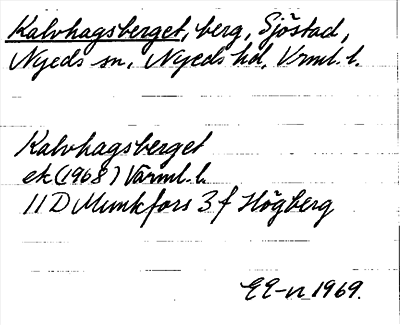 Kalvhagsberget, berg, Sjöstad,
Nyeds sn, Nyeds hd, Vrml. l.
Kalvhagsberget
ek (1968) Värml. l.
11D Munkfors 3 f Högberg
EE-n 1969.